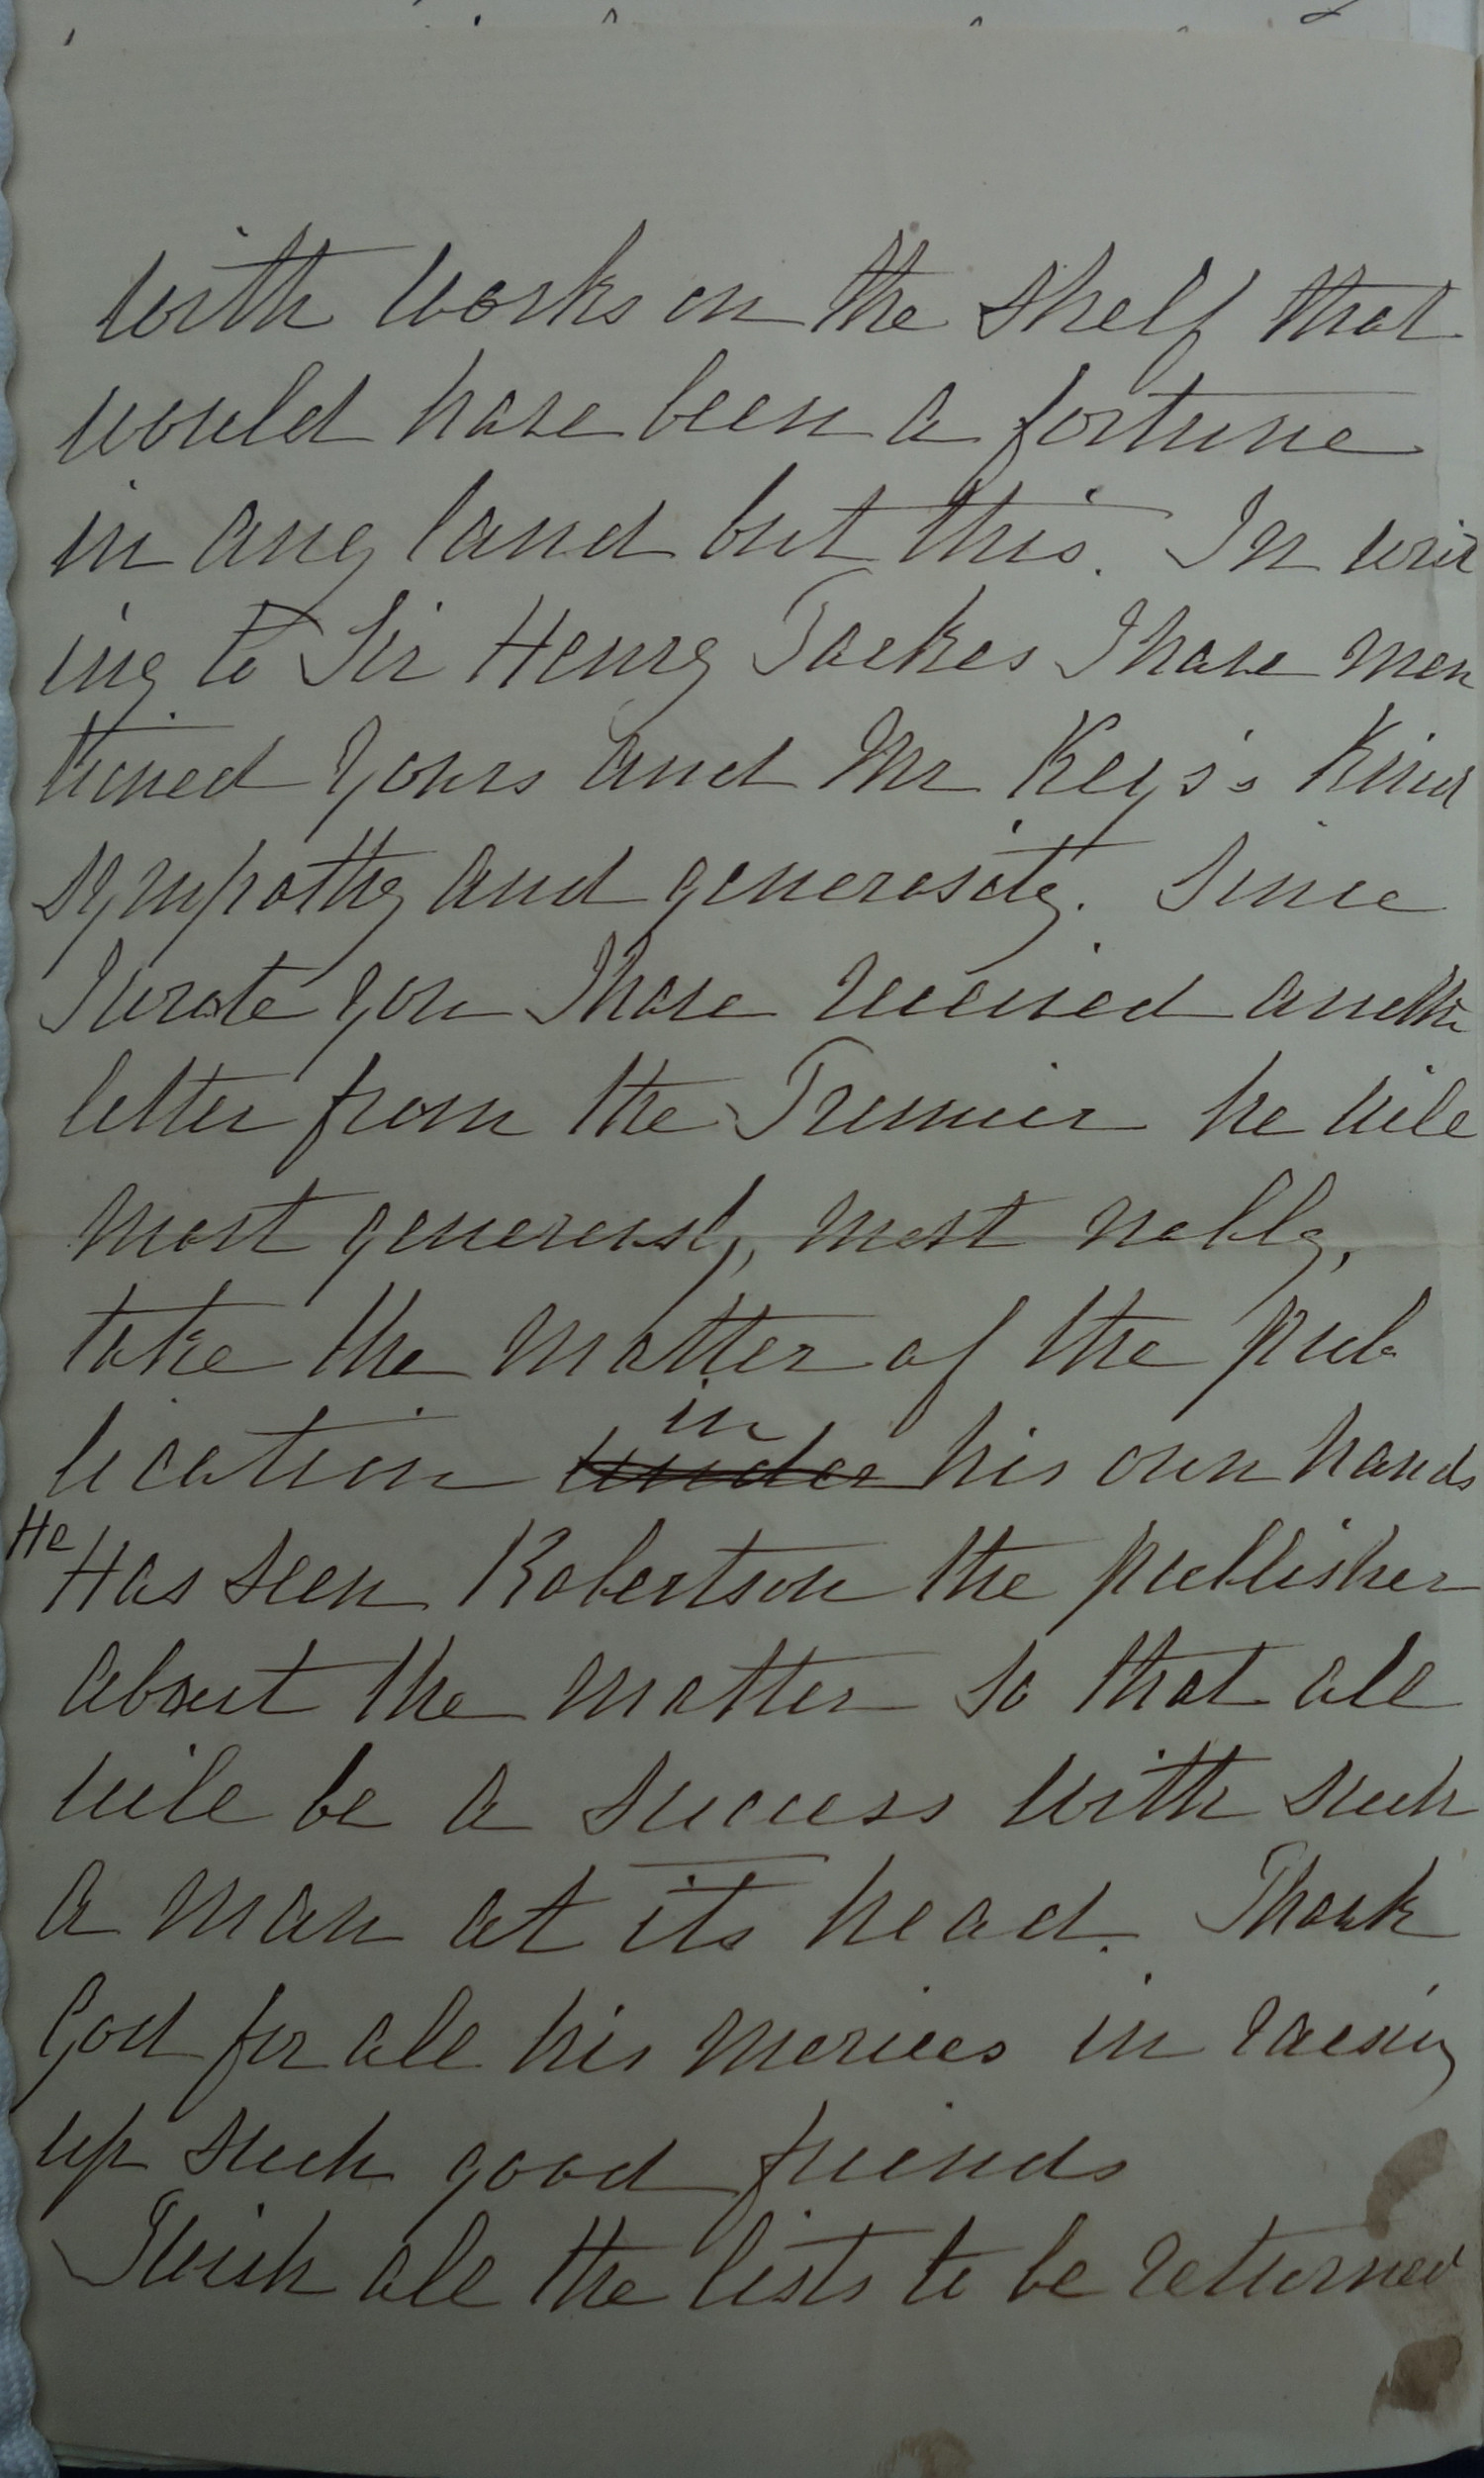 with works on the shelf that
would have been a fortune
in any land but this. In writ
ing to Sir Henry Parkes I have men
tioned yours and Mr Keys's kind
sympathy and generosity. Since
I wrote you I have received another
letter from the Premier he will
most generously, most nobly,
take the matter of the pub
lication under in his own hands
He Has seen Robertson the publisher
about the matter so that all
will be a success with such
a man at its head. Thank
God for all his mercies in raising
up such good friends
I wish all the lists to be returned